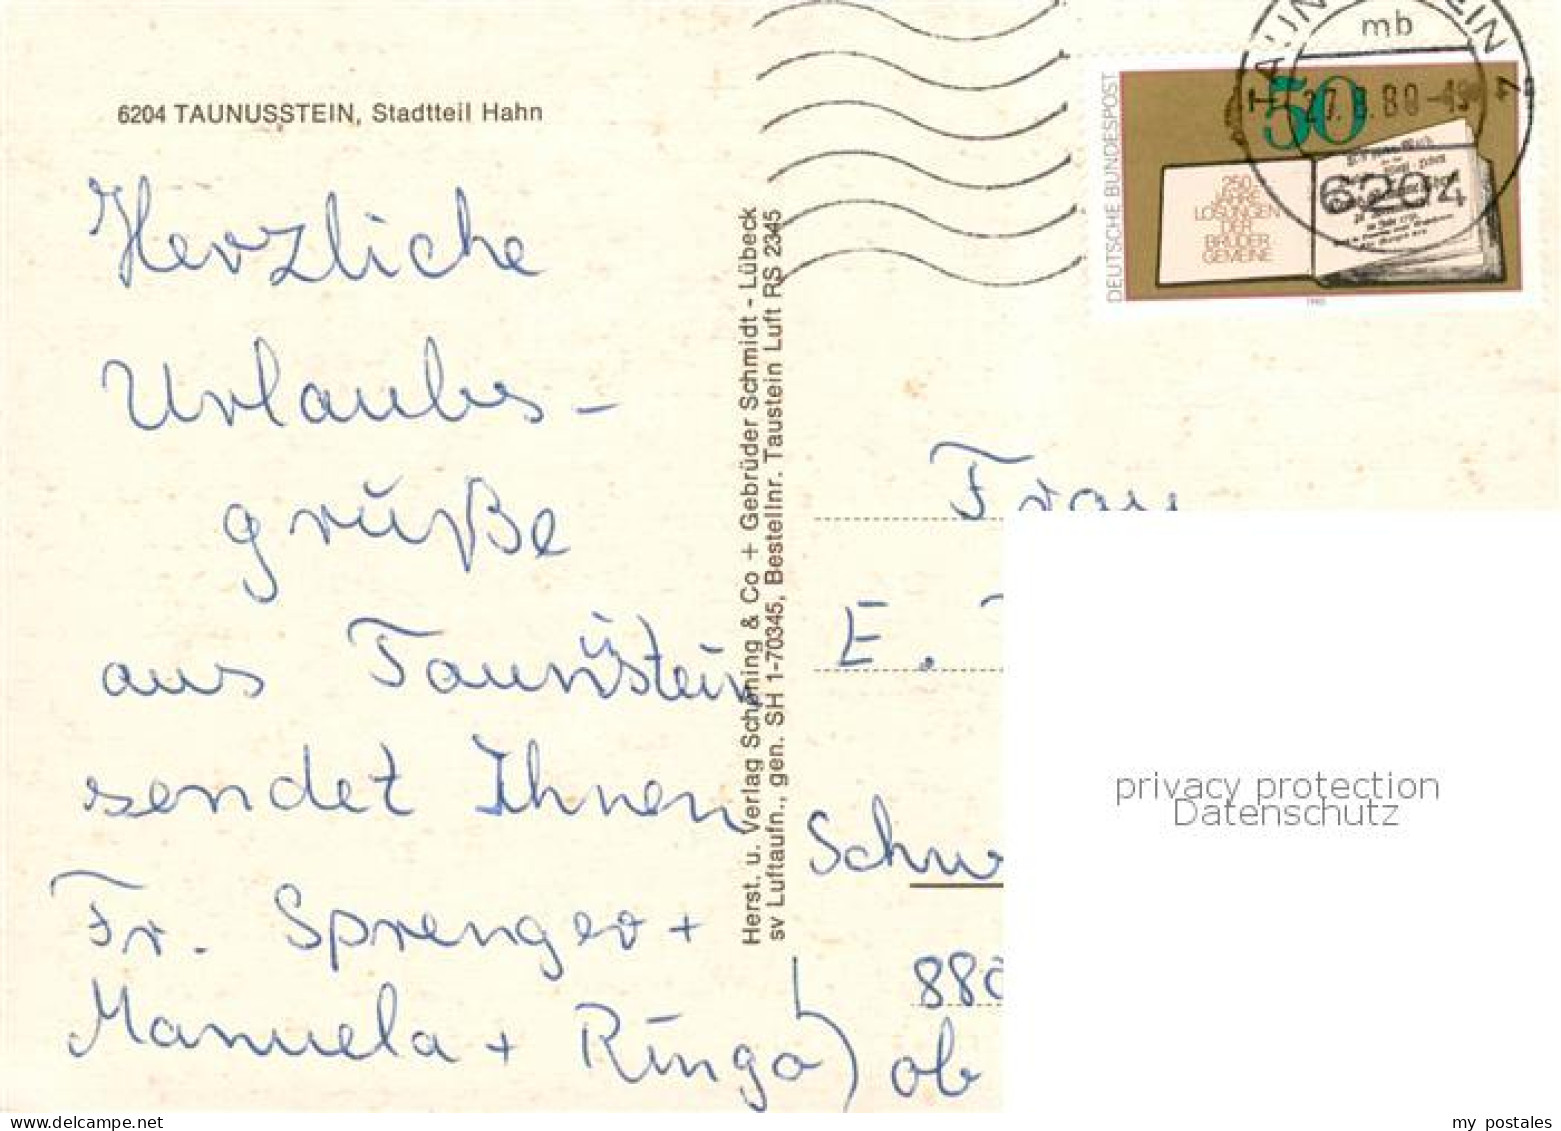 6204 TAUNUSSTEIN, Stadtteil Hahn
Herzliche
Urlaubs-
grüße
aus Taunusstein
sendet Ihnen
Fr. Sprenger +
Manuela + Ringo)
Herst. u. Verlag Schöning & Co + Gebrüder Schmidt - Lübeck
sv Luftaufn., gen. SH 1-70345, Bestellnr. Taustein Luft RS 2345
mb
27.8.80-
6204
DEUTSCHE BUNDESPOST
50
250
JAHRE
LOSUNGEN
DER
BRÜDER
GEMEINE
1980
Frau
E.
Schw
880
ob
privacy protection
Datenschutz
www.delcampe.net
my_postales